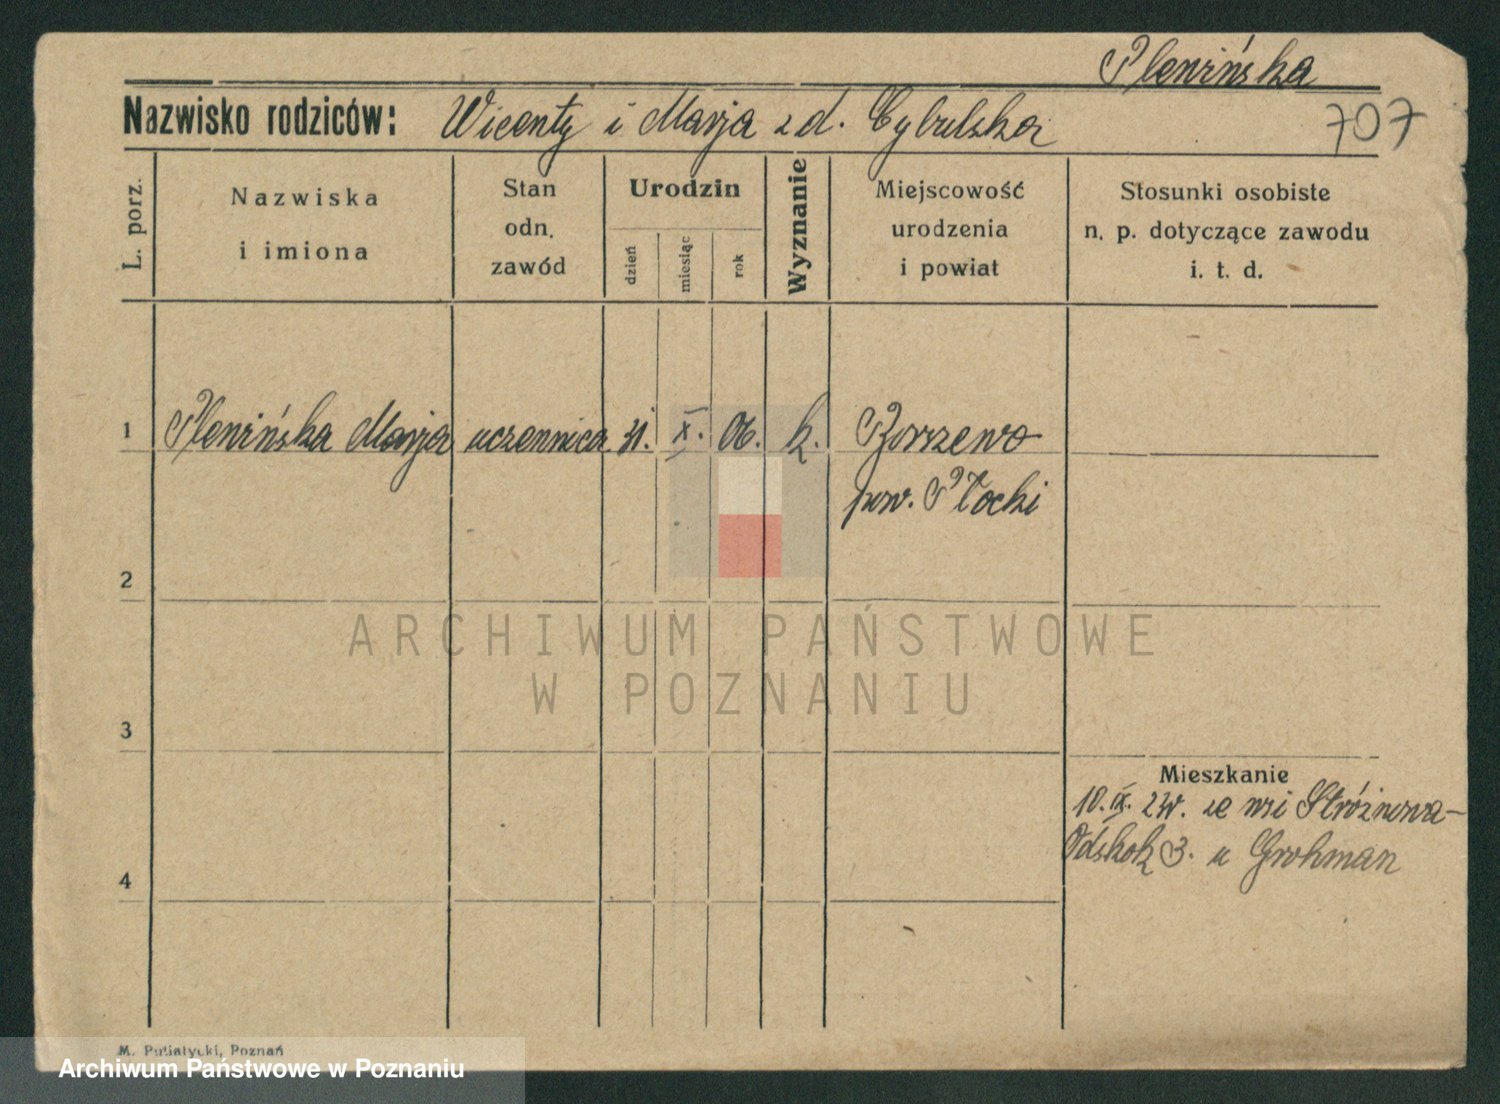 Plewińska
Nazwisko rodziców: Wicenty i Marja z d. Cybulska
707
L. porz.
Nazwiska
i imiona
Stan
odn.
zawód
Urodzin
dzień
miesiąc
rok
Wyznanie
Miejscowość
urodzenia
i powiat
Stosunki osobiste
n. p. dotyczące zawodu
i. t. d.
1 Plewińska Marja uczennica 31. X. 06. k.
pow. Płocki
2
3
4
Mieszkanie
10. IX. ze wsi
Odskok 3. u Grohman
M. Putiatycki, Poznań
ARCHIWUM PAŃSTWOWE
W POZNANIU
Archiwum Państwowe w Poznaniu